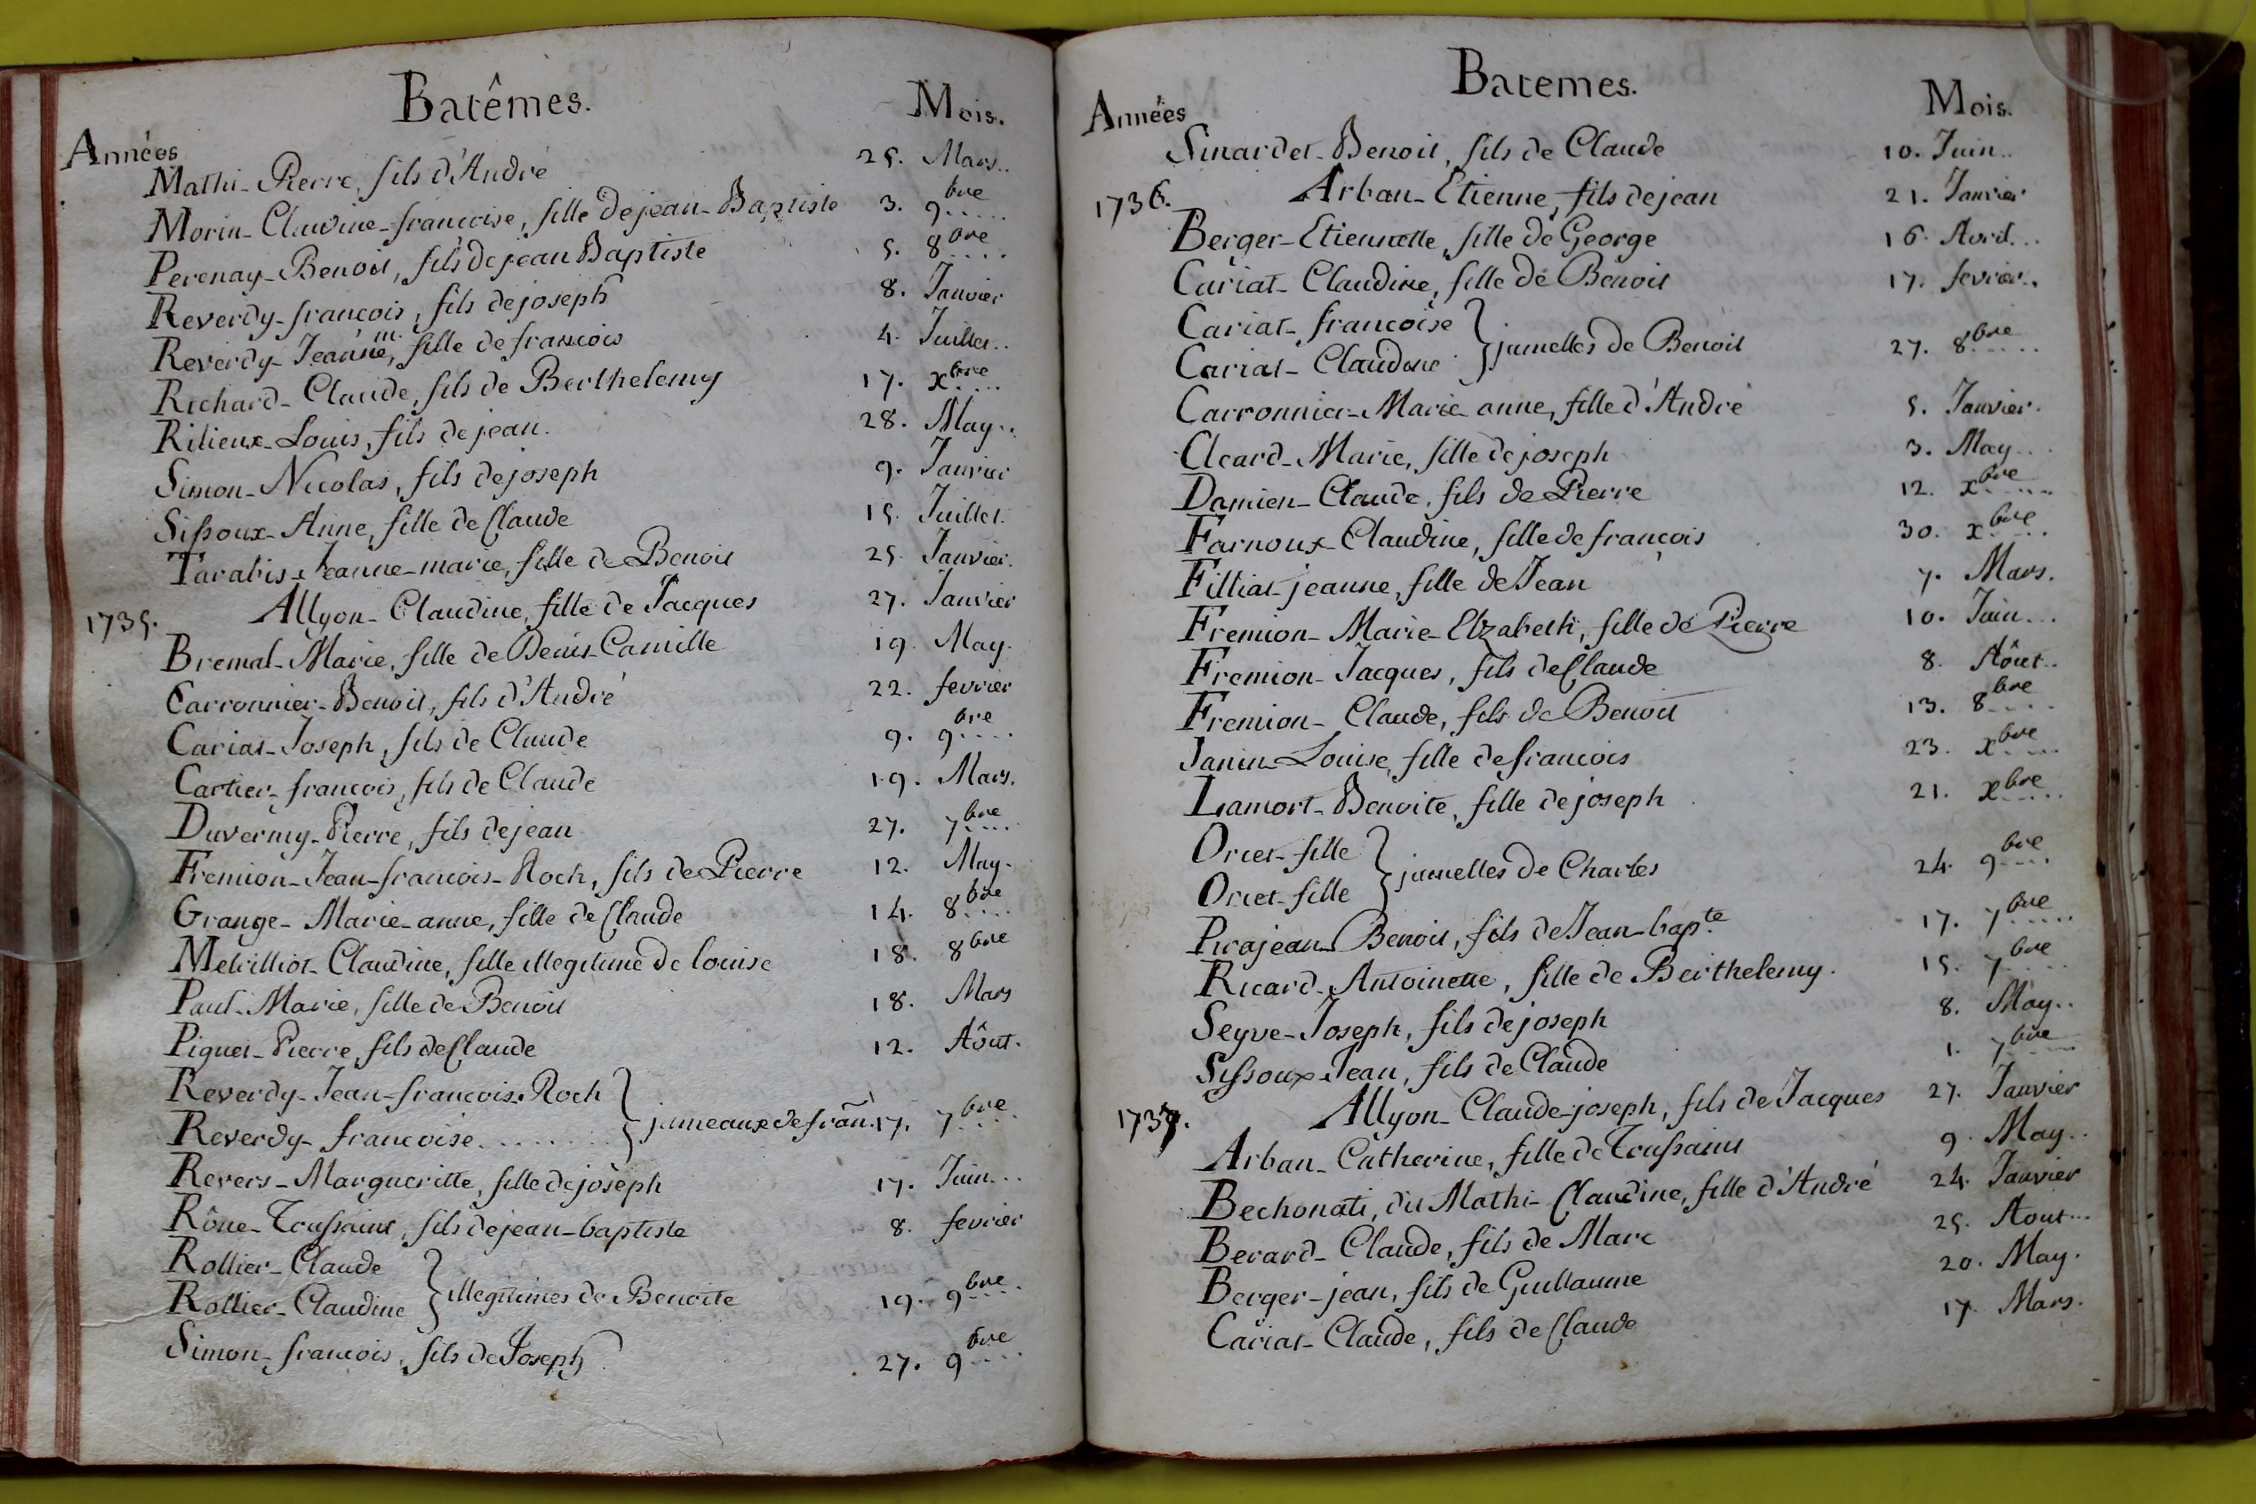 Batêmes.
Années Mois.
Mathi-Pierre, fils d'André 25. Mars..
Morin-Claudine-francoise, fille de jean-Baptiste 3. 9bre
Perenay-Benoit, fils de jean Baptiste 5. 8bre
Reverdy-francois, fils de joseph 8. Janvier
Reverdy-Jeanne m., fille de francois 4. Juillet..
Richard-Claude, fils de Berthelemy 17. xbre
Rilieux-Louis, fils de jean. 28. May..
Simon-Nicolas, fils de joseph 9. Janvier
Sissoux-Anne, fille de Claude 15. Juillet.
Tarabis-Jeanne-marie, fille de Benoit 25. Janvier.
1735. Allyon-Claudine, fille de Jacques 27. Janvier
Bremal-Marie, fille de Denis-Camille 19. May.
Carronnier-Benoit, fils d'André 22. fevrier
Cariat-Joseph, fils de Claude 9. 9bre
Cartier-francois, fils de Claude 19. Mars.
Duverny-Pierre, fils de jean 27. 7bre
Fremion-Jean-francois-Roch, fils de Pierre 12. May.
Grange-Marie-anne, fille de Claude 14. 8bre
Melvilliot-Claudine, fille illegitime de louise 18. 8bre
Paul-Marie, fille de Benoit 18. Mars
Piquet-Pierre, fils de Claude 12. Aôut.
Reverdy-Jean-francois-Roch
Reverdy-francoise........ jumeaux de fran. 17. 7bre
Revers-Margueritte, fille de joseph 17. Juin...
Rône-Toussaint, fils de jean-baptiste 8. fevrier
Rollier-Claude
Rollier-Claudine illegitimes de Benoite 19. 9bre
Simon-francois, fils de Joseph 27. 9bre
Batemes.
Années Mois.
Sinardet-Benoit, fils de Claude 10. Juin..
1736. Arban-Etienne, fils de jean 21. Janvier
Berger-Etiennette, fille de George 16. Avril...
Cariat-Claudine, fille de Benoit 17. fevrier..
Cariat-francoise
Cariat-Claudine jumelles de Benoit 27. 8bre
Carronnier-Marie anne, fille d'André 5. Janvier.
Cleard-Marie, fille de joseph 3. May...
Damien-Claude, fils de Pierre 12. xbre
Farnoux-Claudine, fille de françois 30. xbre
Filliat-jeanne, fille de Jean 7. Mars.
Fremion-Marie-Elzabeth, fille de Pierre 10. Juin...
Fremion-Jacques, fils de Claude 8. Aôut..
Fremion-Claude, fils de Benoit 13. 8bre
Janin-Louise, fille de francois 23. xbre
Lamort-Benoite, fille de joseph 21. xbre
Oriet-fille
Oriet-fille jumelles de Charles 24. 9bre
Picajean-Benoit, fils de Jean-bapte. 17. 7bre
Ricard-Antoinette, fille de Berthelemy. 15. 7bre
Seyve-Joseph, fils de joseph 8. May..
Sissoux-Jean, fils de Claude 1. 7bre
1737. Allyon-Claude-joseph, fils de Jacques 27. Janvier
Arban-Catherine, fille de Toussaint 9. May..
Bechonati, dit Mathi-Claudine, fille d'André 24. Janvier
Berard-Claude, fils de Marc 25. Aout...
Berger-jean, fils de Guillaume 20. May.
Cariat-Claude, fils de Claude 17. Mars.